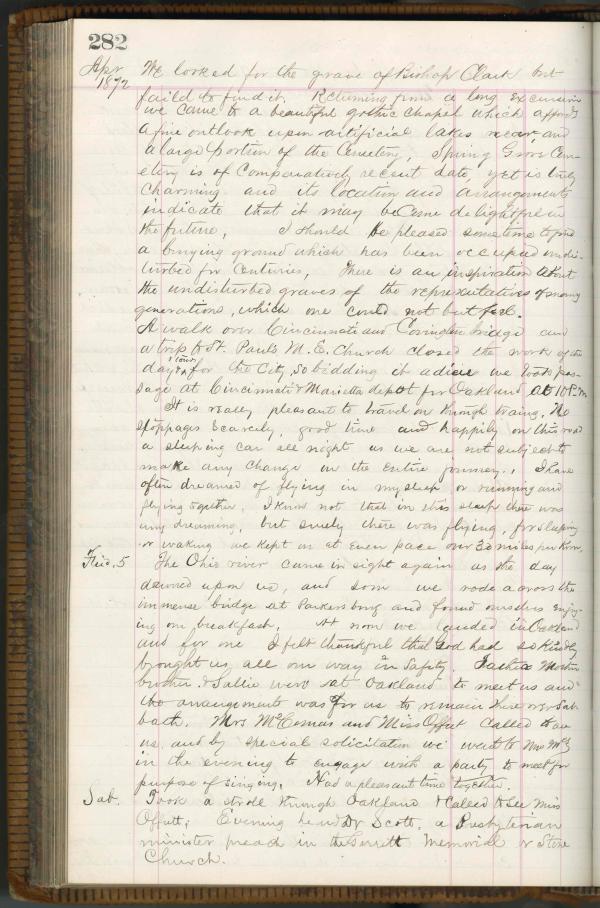 282
Apr 1872
We looked for the grave of Bishop Clark but
faild to find it. Returning from a long excursion
we came to a beautiful gothic chapel which affords
a fine outlook upon artificial lakes near, and
a large portion of the Cemetery, Spring Grove Cem-
etery is of comparatively recent date, yet is truly
charming and its location and arrangements
indicate that it may become delightful in
the future, I should be pleased sometime to find
a burying ground which has been occupied undis-
turbed for Centuries, There is an inspiration about
the undisturbed graves of the representatives of many
generations, which one could not but feel.
A walk over Cincinnati and Covington bridge and
a trip to St. Paul's M. E. Church closed the work of the
day & tour for the City, so bidding it adieu we took pas-
sage at Cincinnati & Marietta depot for Oakland at 10 P.m.
It is really pleasant to travel on through trains, The
stoppages scarcely, good time and happily on this road
a sleeping car all night as we are not subject to
make any change in the entire journey., I have
often dreamed of flying in my sleep or running and
flying together, I know not that in this sleep there was
any dreaming, but surely there was flying, for sleeping
or waking we kept on at even pace our 30 miles per hour.
Frid. 5 The Ohio river came in sight again as the day
dawned upon us, and soon we rode across the
immense bridge at Parkersburg and found ourselves enjoy-
ing our breakfast. At noon we landed in Oakland
and for one I felt thankful that God had so kindly
brought us all our way in safety. Father Mother
brother & Sallie were at Oakland to meet us and
the arrangements was for us to remain there over Sab-
bath. Mrs McComas and Miss Offutt called to see
us and by special solicitation we went to Mrs Mc's
in the evening to engage with a party to meet for
purpose of singing. Had a pleasant time together.
Sab. Took a stroll through Oakland & Called to see Miss
Offutt; Evening heard Dr Scott, a Presbyterian
minister preach in the Garrett Memorial or Stone
Church.